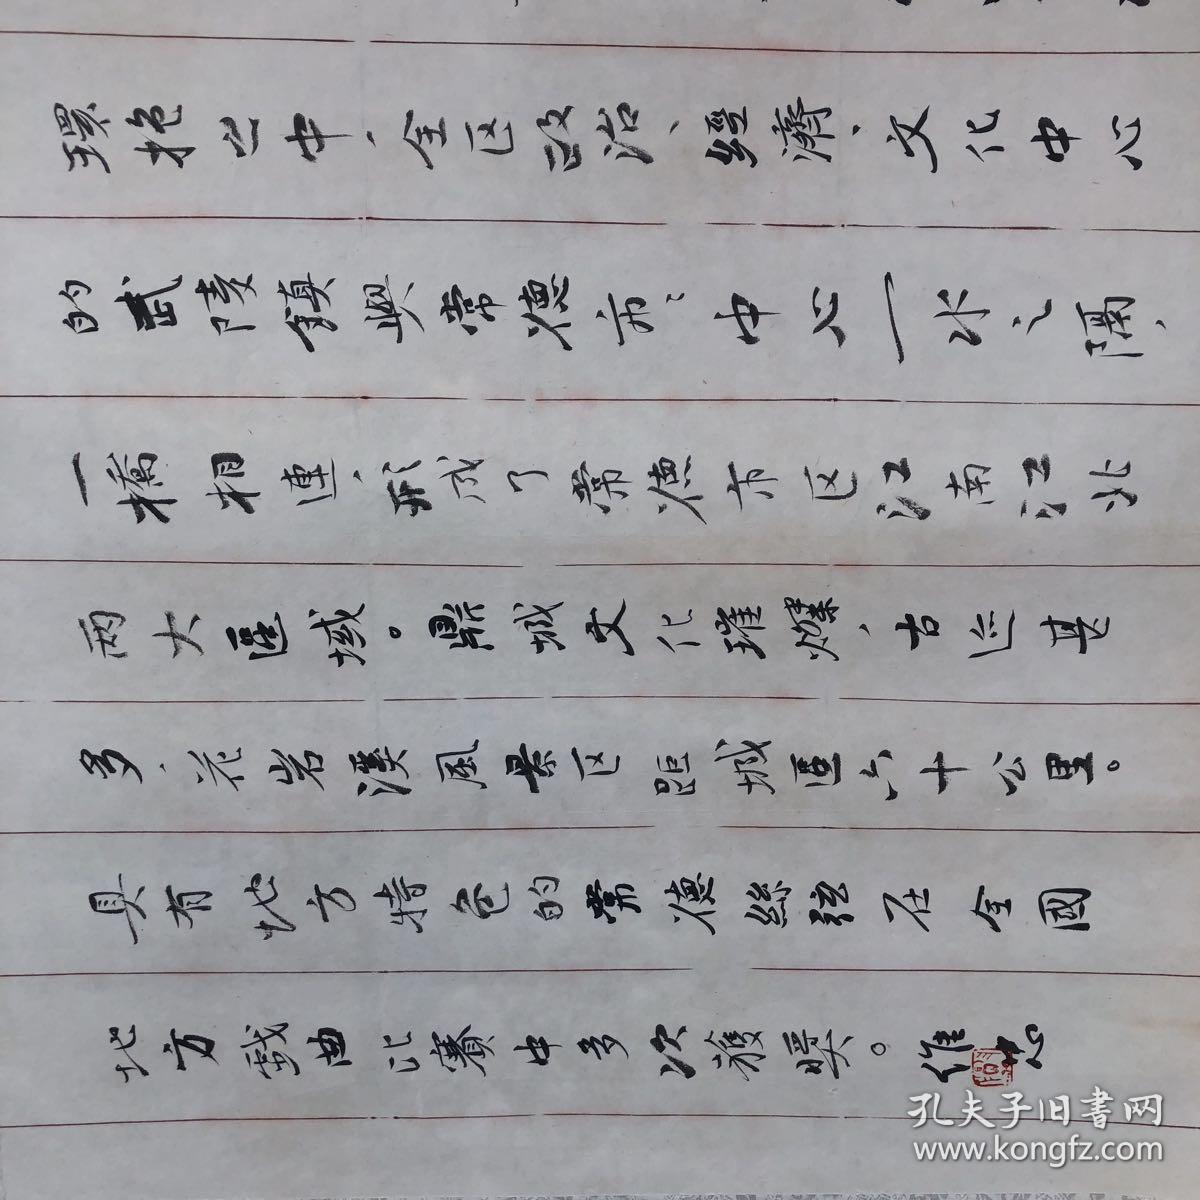 環抱之中、全区政治、經濟、文化中心
的武陵鎮與常德市〻中心一水之隔、
一橋相連、形成了常德市区江南江北
兩大區域。鼎城文化璀燦、古迹甚
多、花岩溪風景区距城區六十公里。
具有地方特色的常德絲弦在全國
地方戲曲比賽中多次獲奬。維忠
孔夫子旧书网
www.kongfz.com